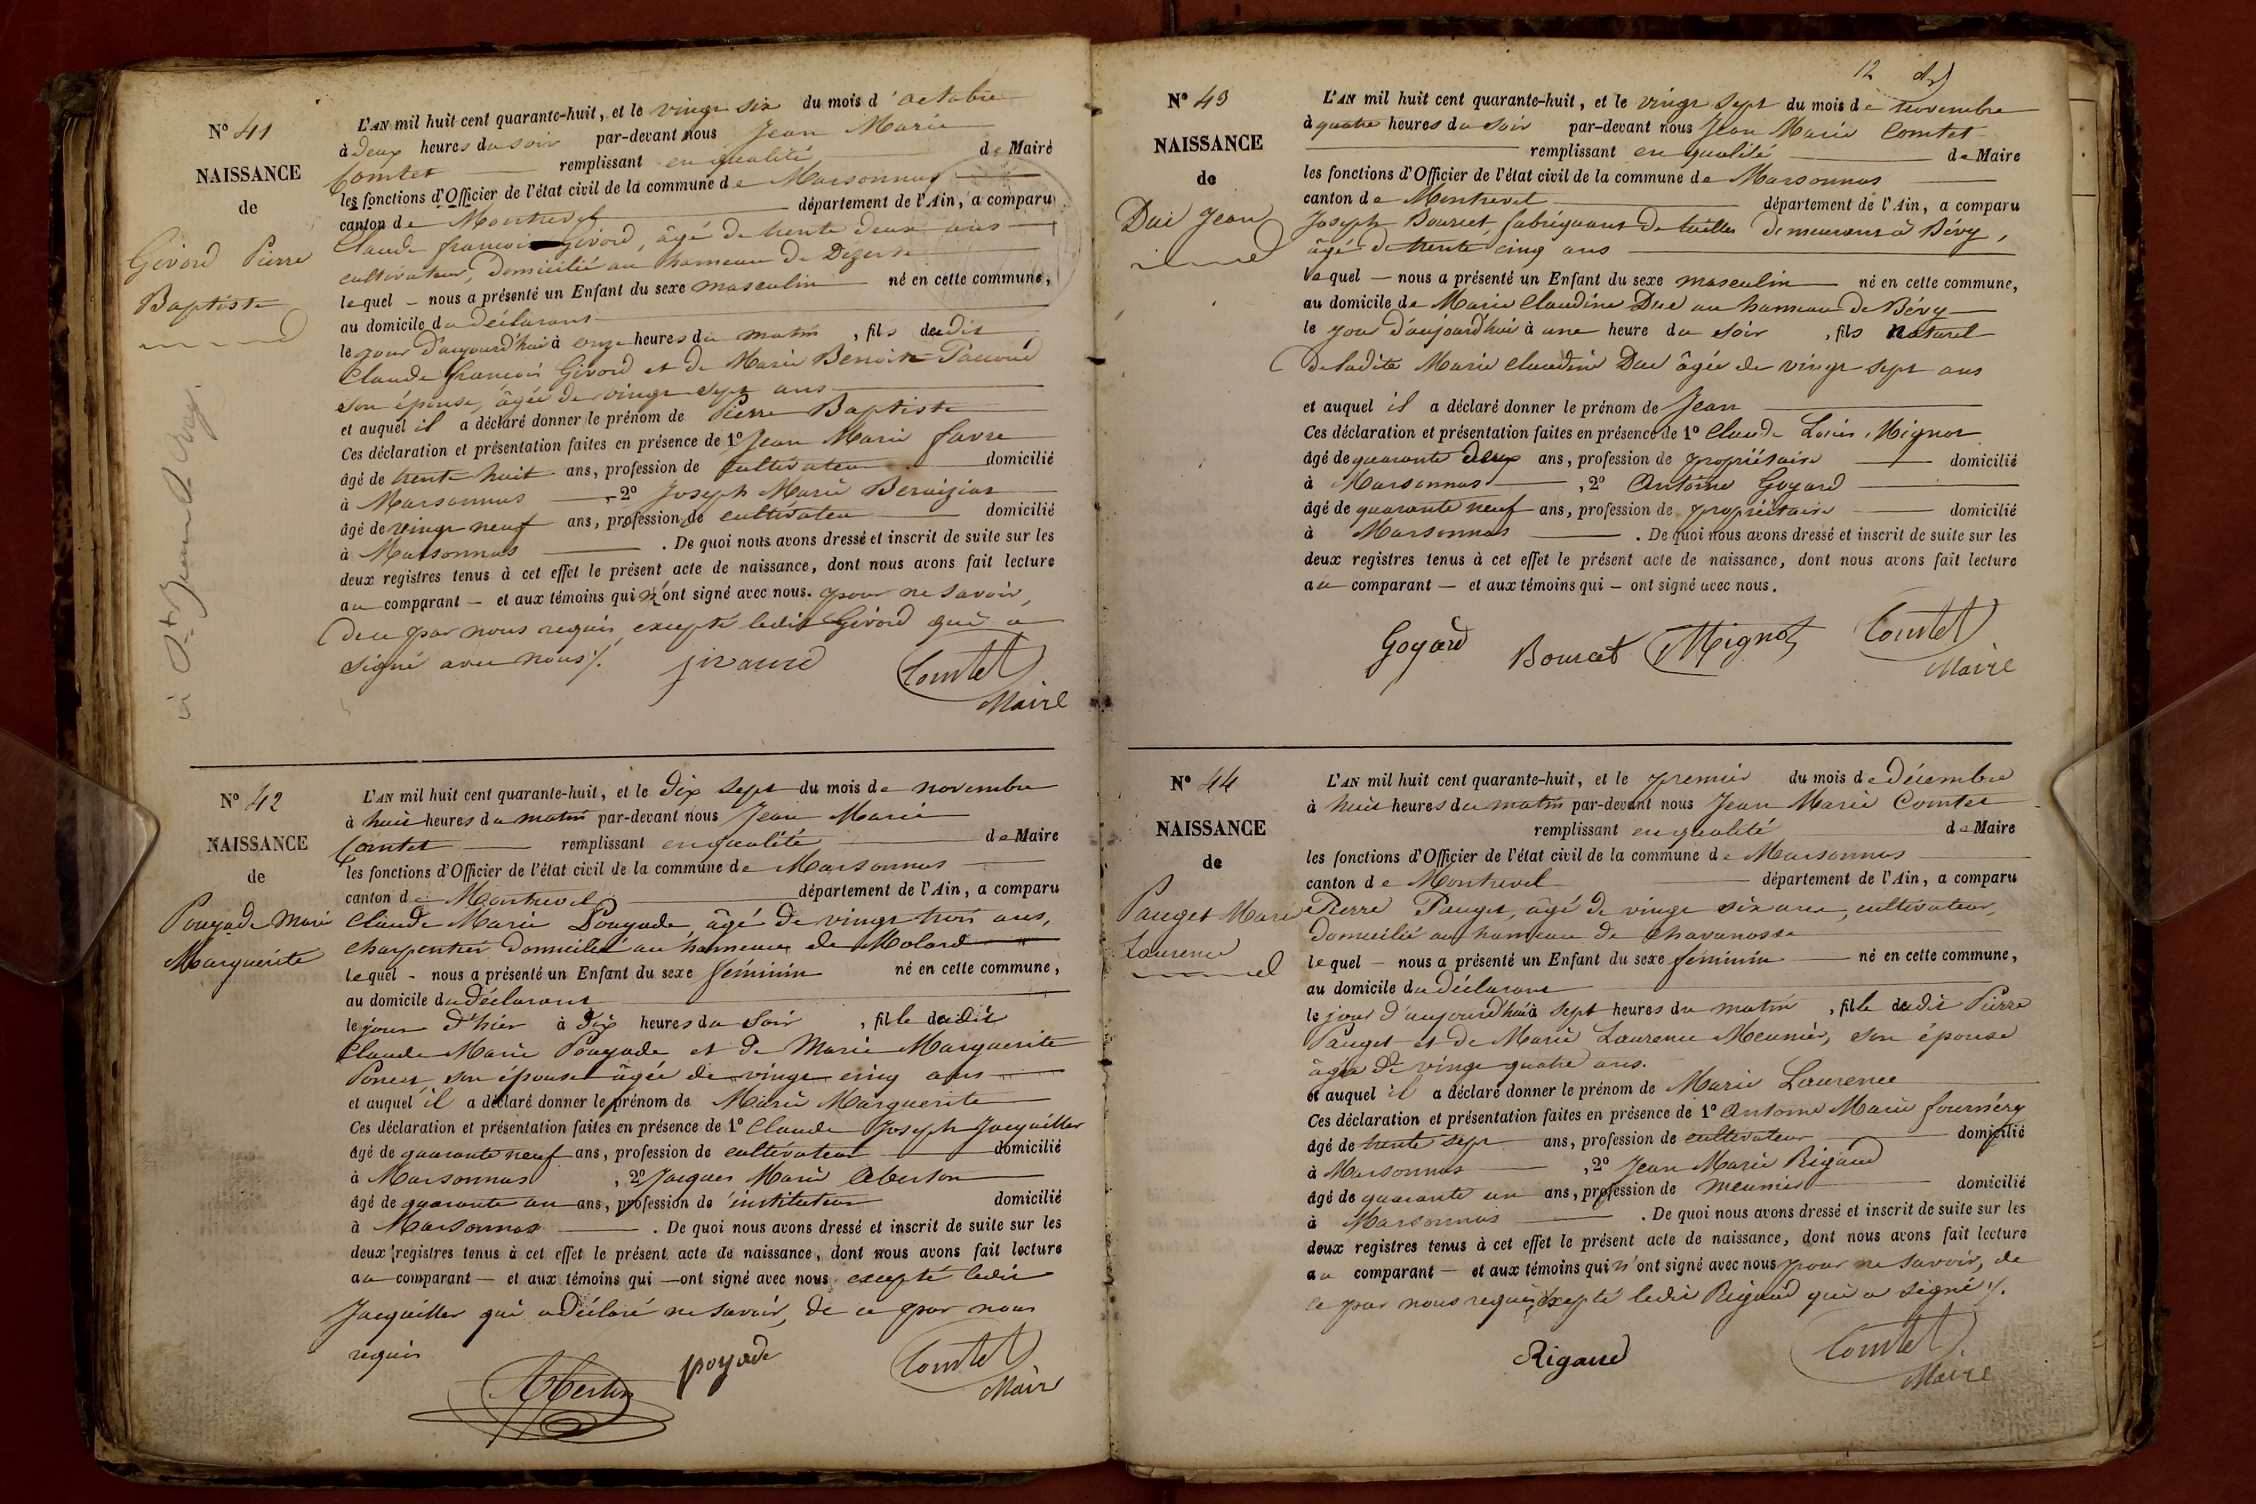 N° 41
NAISSANCE
de
Givord Pierre
Baptiste
L'AN mil huit cent quarante-huit, et le vingt six du mois d'octobre
à deux heures du soir par-devant nous Jean Marie
Comtet remplissant en qualité de Maire
les fonctions d'Officier de l'état civil de la commune de Marsonnas
canton de Montrevel département de l'Ain, a comparu
Claude françois Givord, âgé de trente deux ans
cultivateur, domicilié au hameau de Dezerte
lequel - nous a présenté un Enfant du sexe masculin né en cette commune,
au domicile du déclarant
le jour d'aujourd'hui à onze heures du matin, fils dudit
Claude françois Givord et de Marie Benoite Pacoud
son épouse, âgée de vingt sept ans
et auquel il a déclaré donner le prénom de Pierre Baptiste
Ces déclaration et présentation faites en présence de 1° Jean Marie favre
âgé de trente huit ans, profession de cultivateur domicilié
à Marsonnas, 2° Joseph Marie
âgé de vingt neuf ans, profession de cultivateur domicilié
à Marsonnas. De quoi nous avons dressé et inscrit de suite sur les
deux registres tenus à cet effet le présent acte de naissance, dont nous avons fait lecture
au comparant - et aux témoins qui n'ont signé avec nous. pour ne savoir,
de ce par nous requis, excepté ledit Givord qui a
signé avec nous ./.
Comtet
Maire
N° 42
NAISSANCE
de
Pouyade Marie
Marguerite
L'AN mil huit cent quarante-huit, et le dix sept du mois de novembre
à huit heures du matin par-devant nous Jean Marie
Comtet remplissant en qualité de Maire
les fonctions d'Officier de l'état civil de la commune de Marsonnas
canton de Montrevel département de l'Ain, a comparu
Claude Marie Pouyade, âgé de vingt trois ans,
charpentier domicilié au hameau de Molard
lequel - nous a présenté un Enfant du sexe féminin né en cette commune,
au domicile du déclarant
le jour d'hier à dix heures du soir, fille dudit
Claude Marie Pouyade et de Marie Marguerite
Poncet, son épouse âgée de vingt cinq ans
et auquel il a déclaré donner le prénom de Marie Marguerite
Ces déclaration et présentation faites en présence de 1° Claude Joseph Jacquiller
âgé de quarante neuf ans, profession de cultivateur domicilié
à Marsonnas, 2° Jacques Marie Alberton
âgé de quarante un ans, profession de instituteur domicilié
à Marsonnas. De quoi nous avons dressé et inscrit de suite sur les
deux registres tenus à cet effet le présent acte de naissance, dont nous avons fait lecture
au comparant - et aux témoins qui - ont signé avec nous excepté ledit
Jacquiller qui a déclaré ne savoir, de ce par nous
requis
poyade
Comtet
Maire
12
N° 43
NAISSANCE
de
Duc Jean
L'AN mil huit cent quarante-huit, et le vingt sept du mois de novembre
à quatre heures du soir par-devant nous Jean Marie Comtet
remplissant en qualité de Maire
les fonctions d'Officier de l'état civil de la commune de Marsonnas
canton de Montrevel département de l'Ain, a comparu
Joseph Bourcet, fabriquant de tuilles demeurant à Bévy,
âgé de trente cinq ans
lequel - nous a présenté un Enfant du sexe masculin né en cette commune,
au domicile de Marie Claudine Duc au hameau de Bévy
le jour d'aujourd'hui à une heure du soir, fils naturel
de ladite Marie Claudine Duc âgée de vingt sept ans
et auquel il a déclaré donner le prénom de Jean
Ces déclaration et présentation faites en présence de 1° Claude Louis Mignot
âgé de quarante deux ans, profession de propriétaire domicilié
à Marsonnas, 2° Antoine Goyard
âgé de quarante neuf ans, profession de propriétaire domicilié
à Marsonnas. De quoi nous avons dressé et inscrit de suite sur les
deux registres tenus à cet effet le présent acte de naissance, dont nous avons fait lecture
au comparant - et aux témoins qui - ont signé avec nous.
Goyard Bourcet Mignot Comtet
Maire
N° 44
NAISSANCE
de
Pauget Marie
Laurence
L'AN mil huit cent quarante-huit, et le premier du mois de décembre
à huit heures du matin par-devant nous Jean Marie Comtet
remplissant en qualité de Maire
les fonctions d'Officier de l'état civil de la commune de Marsonnas
canton de Montrevel département de l'Ain, a comparu
Pierre Pauget, âgé de vingt six ans, cultivateur,
domicilié au hameau de Chavanosse
lequel - nous a présenté un Enfant du sexe féminin né en cette commune,
au domicile du déclarant
le jour d'aujourd'hui à sept heures du matin, fille dudit Pierre
Pauget et de Marie Laurence Meunier, son épouse
âgée de vingt quatre ans.
et auquel il a déclaré donner le prénom de Marie Laurence
Ces déclaration et présentation faites en présence de 1° Antoine Marie fournéry
âgé de trente sept ans, profession de cultivateur domicilié
à Marsonnas, 2° Jean Marie Rigaud
âgé de quarante un ans, profession de meunier domicilié
à Marsonnas. De quoi nous avons dressé et inscrit de suite sur les
deux registres tenus à cet effet le présent acte de naissance, dont nous avons fait lecture
au comparant - et aux témoins qui n'ont signé avec nous pour ne savoir, de
ce par nous requis, excepté ledit Rigaud qui a signé ./.
Rigaud
Comtet
Maire